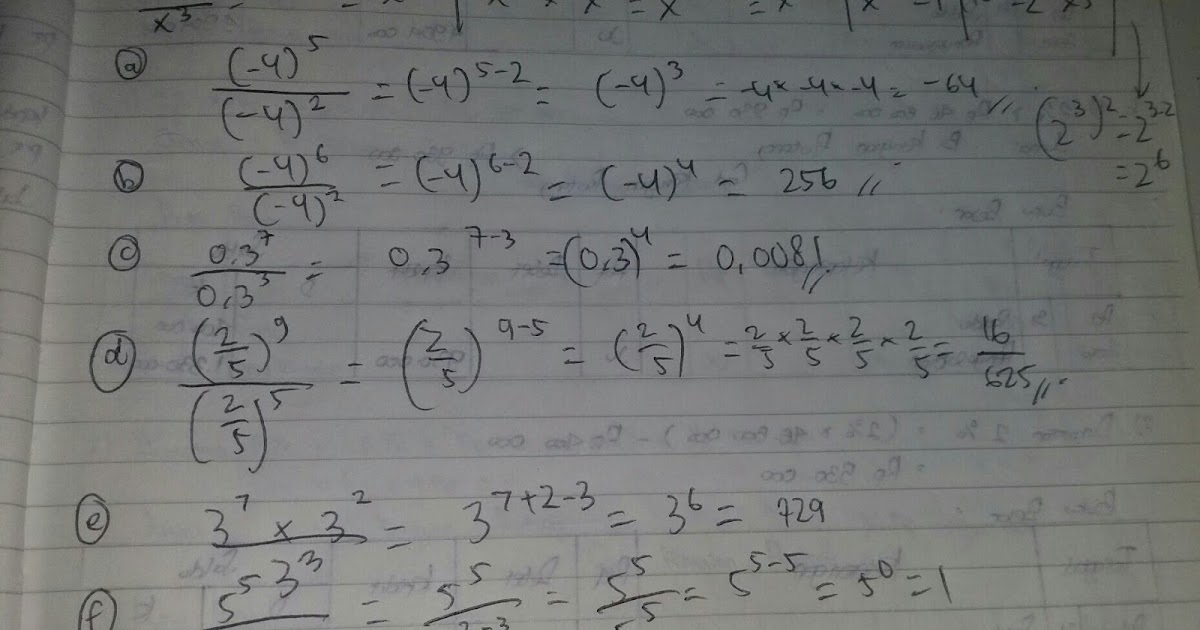 x³
ⓐ (-4)⁵/(-4)² = (-4)⁵⁻² = (-4)³ = -4 × -4 × -4 = -64 //
(2³)² = 2³·²
= 2⁶
ⓑ (-4)⁶/(-4)² = (-4)⁶⁻² = (-4)⁴ = 256 //
ⓒ 0,3⁷/0,3³ = 0,3⁷⁻³ = (0,3)⁴ = 0,0081 //
ⓓ (2/5)⁹/(2/5)⁵ = (2/5)⁹⁻⁵ = (2/5)⁴ = 2/5 × 2/5 × 2/5 × 2/5 = 16/625 //
ⓔ 3⁷ × 3²/3³ = 3⁷⁺²⁻³ = 3⁶ = 729
ⓕ 5⁵ = 5⁵ = 5⁵/5⁵ = 5⁵⁻⁵ = 5⁰ = 1